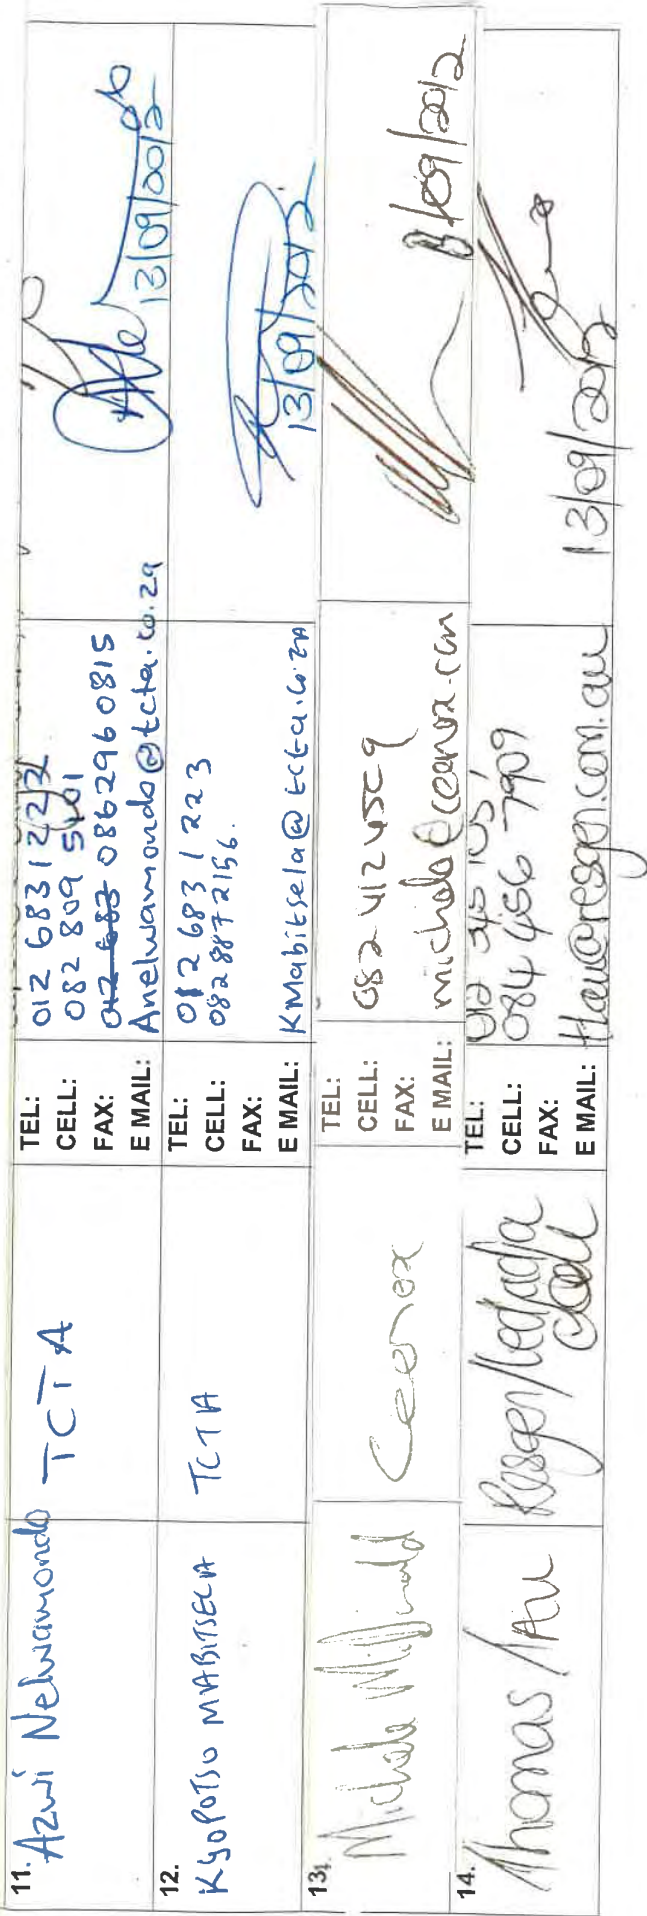 11. Azwi Nelwamondo
TCTA
TEL: 012 683 1222
CELL: 082 809 5401
FAX: 012 683 0862960815
E MAIL: Anelwamondo@tcta.co.za
13/09/2012
12.
KGOPOTSO MABITSELA
TCTA
TEL: 012 683 1223
CELL: 082 887 2156.
FAX:
E MAIL: KMabitsela@tcta.co.za
13/09/2012
13.
Michele
Ceenex
TEL:
CELL: 082 412 4529
FAX:
E MAIL: michele@ceenex.com
13/09/2012
14.
Thomas Tau
Resgen/Ledjadja
Coal
TEL: 012 345 1057
CELL: 084 456 7909
FAX:
E MAIL: ttau@resgen.com.au
13/09/2012